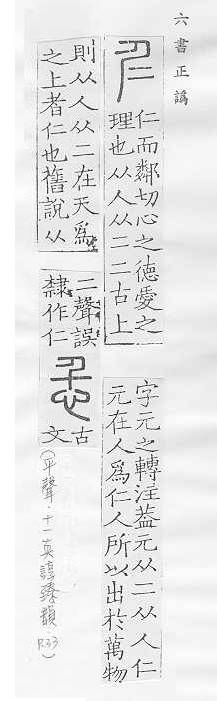 六書正譌
仁而鄰切心之德愛之
理也从人从二二古上
字元之轉注蓋元从二从人仁
則从人从二在天爲
元在人爲仁人所以出於萬物
之上者仁也舊說从
二聲誤
隸作仁
古
文
(平聲.十一真諄臻韻 P.33)